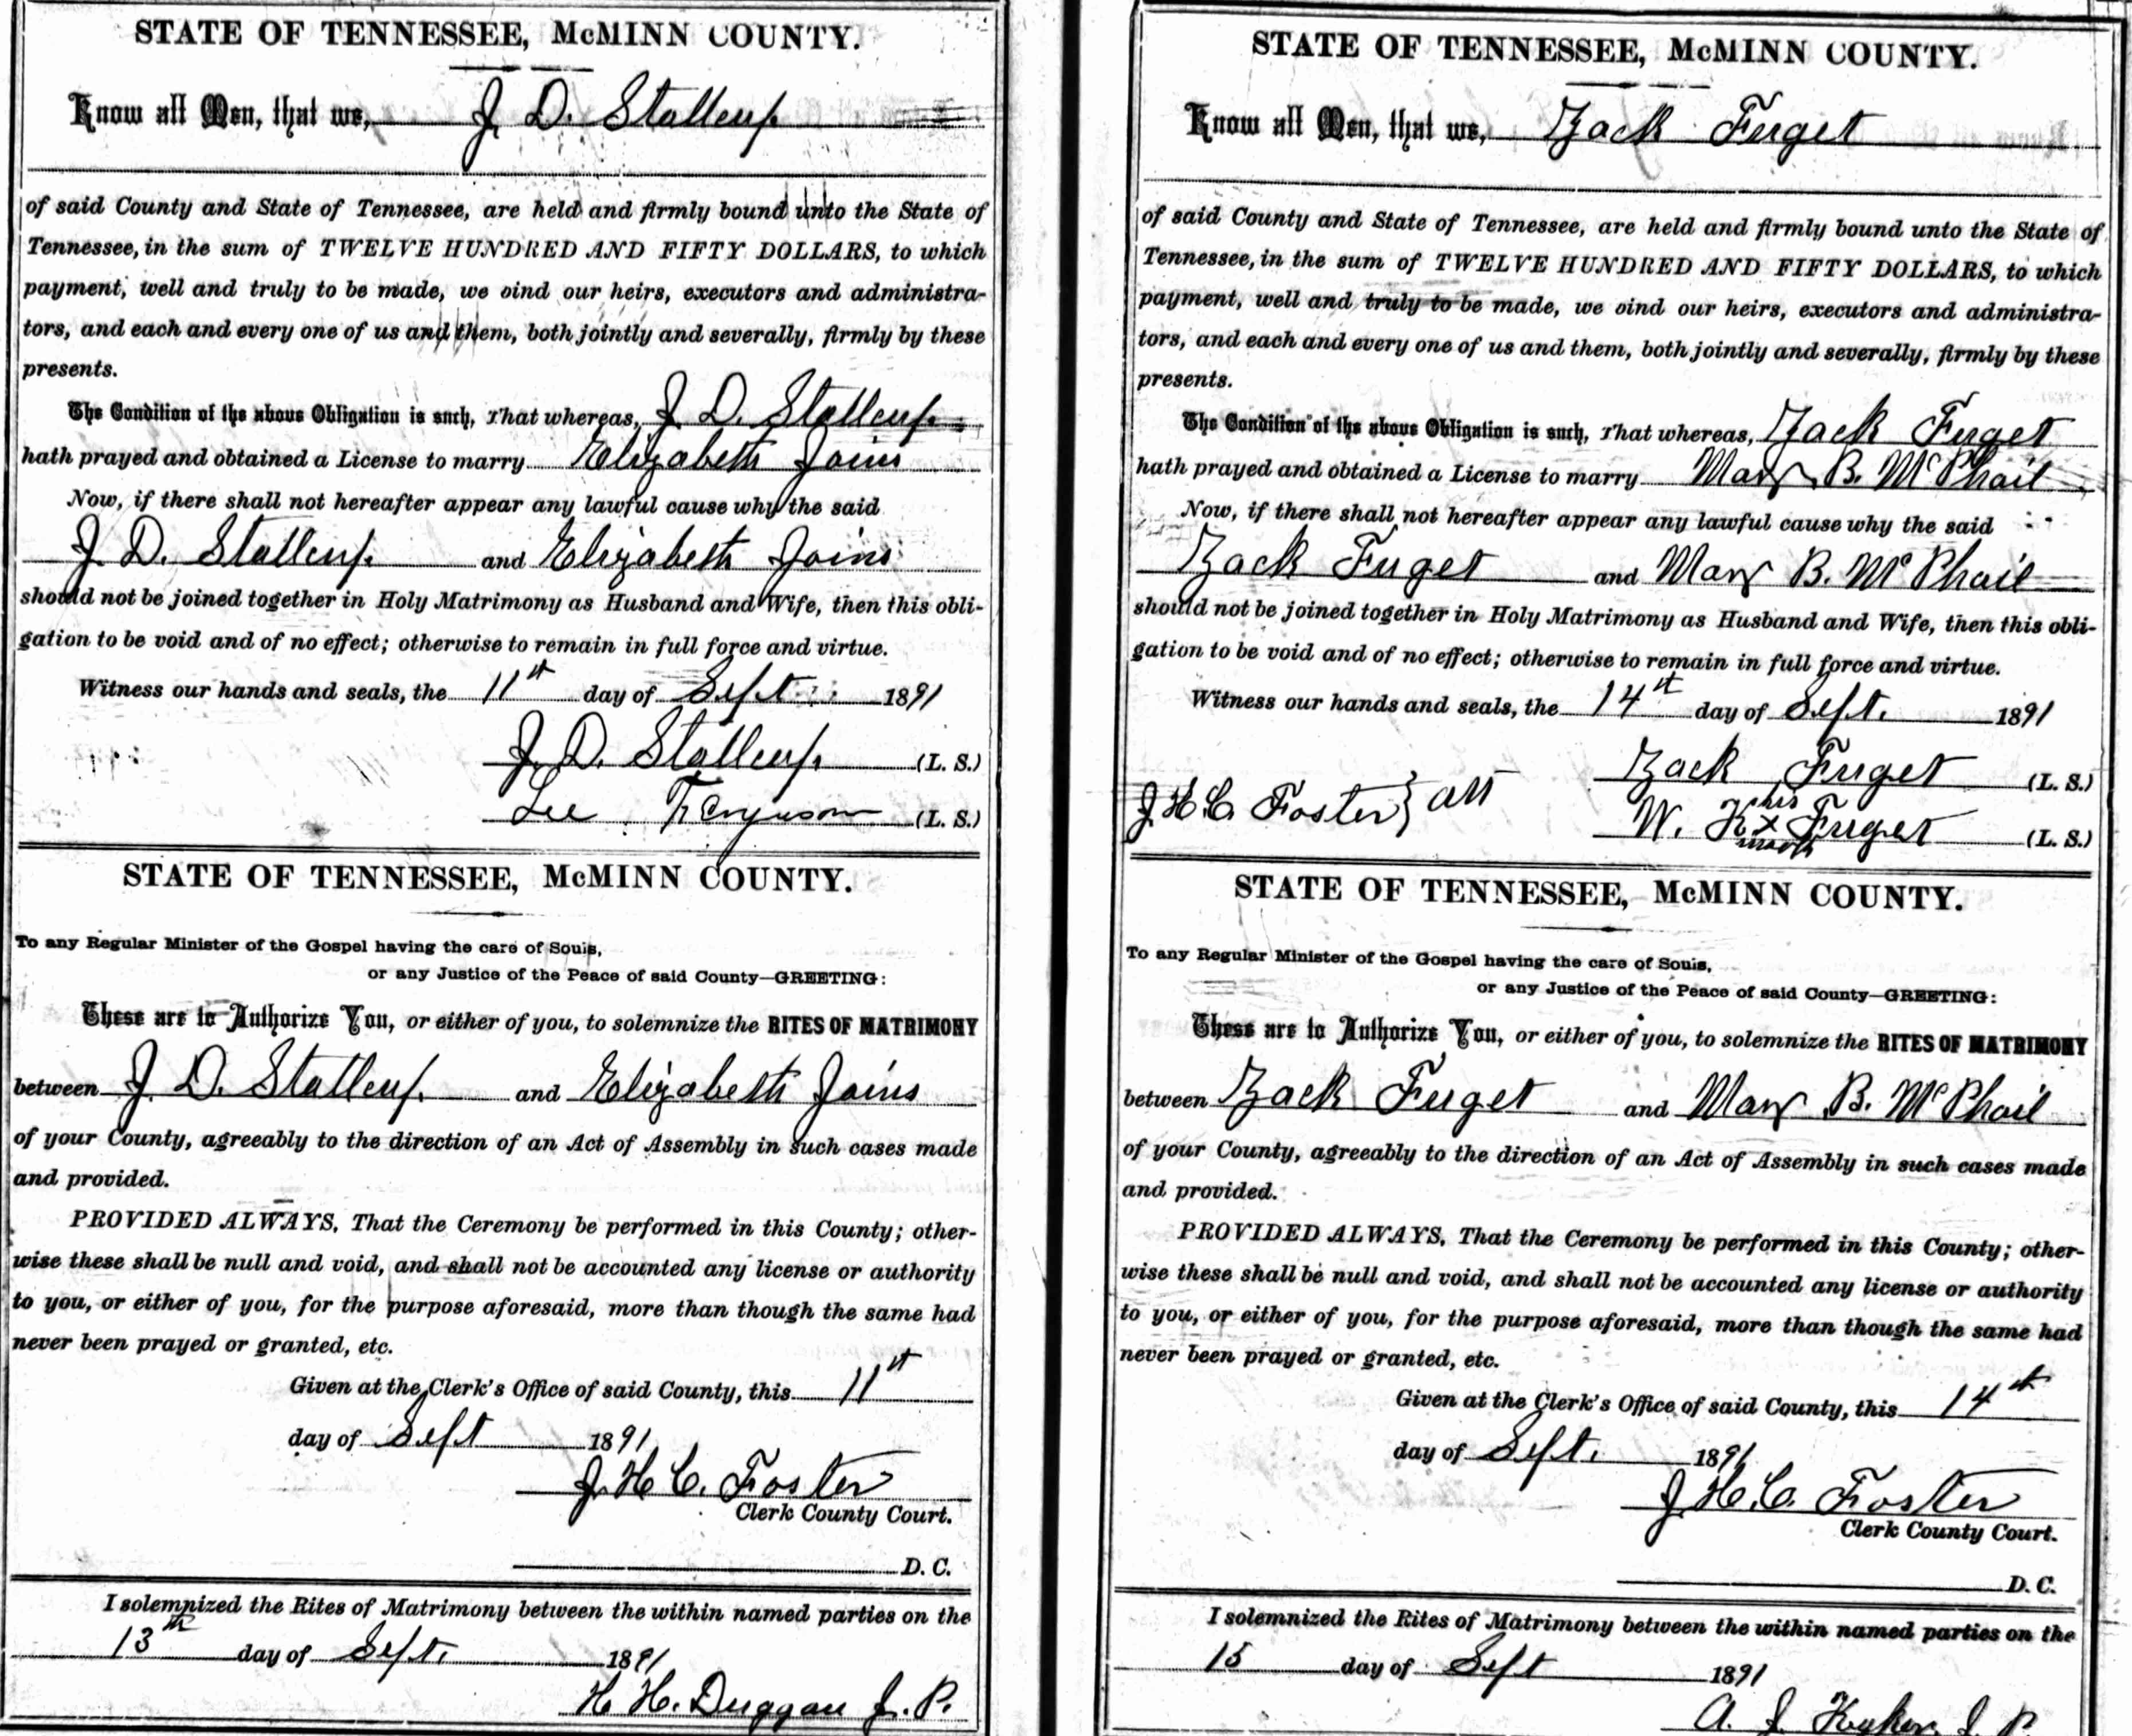 STATE OF TENNESSEE, McMINN COUNTY.
Know all Men, that we, J. D. Stallcup
of said County and State of Tennessee, are held and firmly bound unto the State of
Tennessee, in the sum of TWELVE HUNDRED AND FIFTY DOLLARS, to which
payment, well and truly to be made, we oind our heirs, executors and administra-
tors, and each and every one of us and them, both jointly and severally, firmly by these
presents.
The Condition of the above Obligation is such, That whereas, J. D. Stallcup
hath prayed and obtained a License to marry Elizabeth Joins
Now, if there shall not hereafter appear any lawful cause why the said
J. D. Stallcup and Elizabeth Joins
should not be joined together in Holy Matrimony as Husband and Wife, then this obli-
gation to be void and of no effect; otherwise to remain in full force and virtue.
Witness our hands and seals, the 11st day of Sept. 1891
J. D. Stallcup (L. S.)
Lee Ferguson (L. S.)
STATE OF TENNESSEE, McMINN COUNTY.
To any Regular Minister of the Gospel having the care of Souls,
or any Justice of the Peace of said County—GREETING:
These are to Authorize You, or either of you, to solemnize the RITES OF MATRIMONY
between J. D. Stallcup and Elizabeth Joins
of your County, agreeably to the direction of an Act of Assembly in such cases made
and provided.
PROVIDED ALWAYS, That the Ceremony be performed in this County; other-
wise these shall be null and void, and shall not be accounted any license or authority
to you, or either of you, for the purpose aforesaid, more than though the same had
never been prayed or granted, etc.
Given at the Clerk's Office of said County, this 11st
day of Sept 1891
J. H. C. Foster
Clerk County Court.
D. C.
I solemnized the Rites of Matrimony between the within named parties on the
13th day of Sept. 1891
H. H. Duggan J. P.
STATE OF TENNESSEE, McMINN COUNTY.
Know all Men, that we, Zack Fuget
of said County and State of Tennessee, are held and firmly bound unto the State of
Tennessee, in the sum of TWELVE HUNDRED AND FIFTY DOLLARS, to which
payment, well and truly to be made, we oind our heirs, executors and administra-
tors, and each and every one of us and them, both jointly and severally, firmly by these
presents.
The Condition of the above Obligation is such, That whereas, Zack Fuget
hath prayed and obtained a License to marry Mary B. McPhail
Now, if there shall not hereafter appear any lawful cause why the said
Zack Fuget and Mary B. McPhail
should not be joined together in Holy Matrimony as Husband and Wife, then this obli-
gation to be void and of no effect; otherwise to remain in full force and virtue.
Witness our hands and seals, the 14st day of Sept. 1891
Zack Fuget (L. S.)
J. H. C. Foster } att
his
W. K x Fuget (L. S.)
mark
STATE OF TENNESSEE, McMINN COUNTY.
To any Regular Minister of the Gospel having the care of Souls,
or any Justice of the Peace of said County—GREETING:
These are to Authorize You, or either of you, to solemnize the RITES OF MATRIMONY
between Zack Fuget and Mary B. McPhail
of your County, agreeably to the direction of an Act of Assembly in such cases made
and provided.
PROVIDED ALWAYS, That the Ceremony be performed in this County; other-
wise these shall be null and void, and shall not be accounted any license or authority
to you, or either of you, for the purpose aforesaid, more than though the same had
never been prayed or granted, etc.
Given at the Clerk's Office of said County, this 14st
day of Sept. 1891
J. H. C. Foster
Clerk County Court.
D. C.
I solemnized the Rites of Matrimony between the within named parties on the
15 day of Sept 1891
A. J. Kyker J. P.